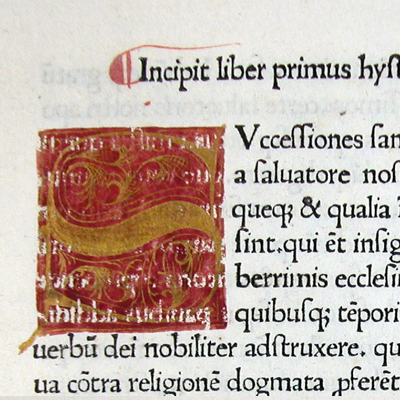 Incipit liber primus hyſt
SVcceſſiones ſan
a ſaluatore noſ
queqꝫ & qualia
ſint.qui ēt inſig
berrimis eccleſi
quibuſqꝫ tēpori
uerbū dei nobiliter adſtruxere. qu
ua cōtra religionē dogmata ꝓferēt